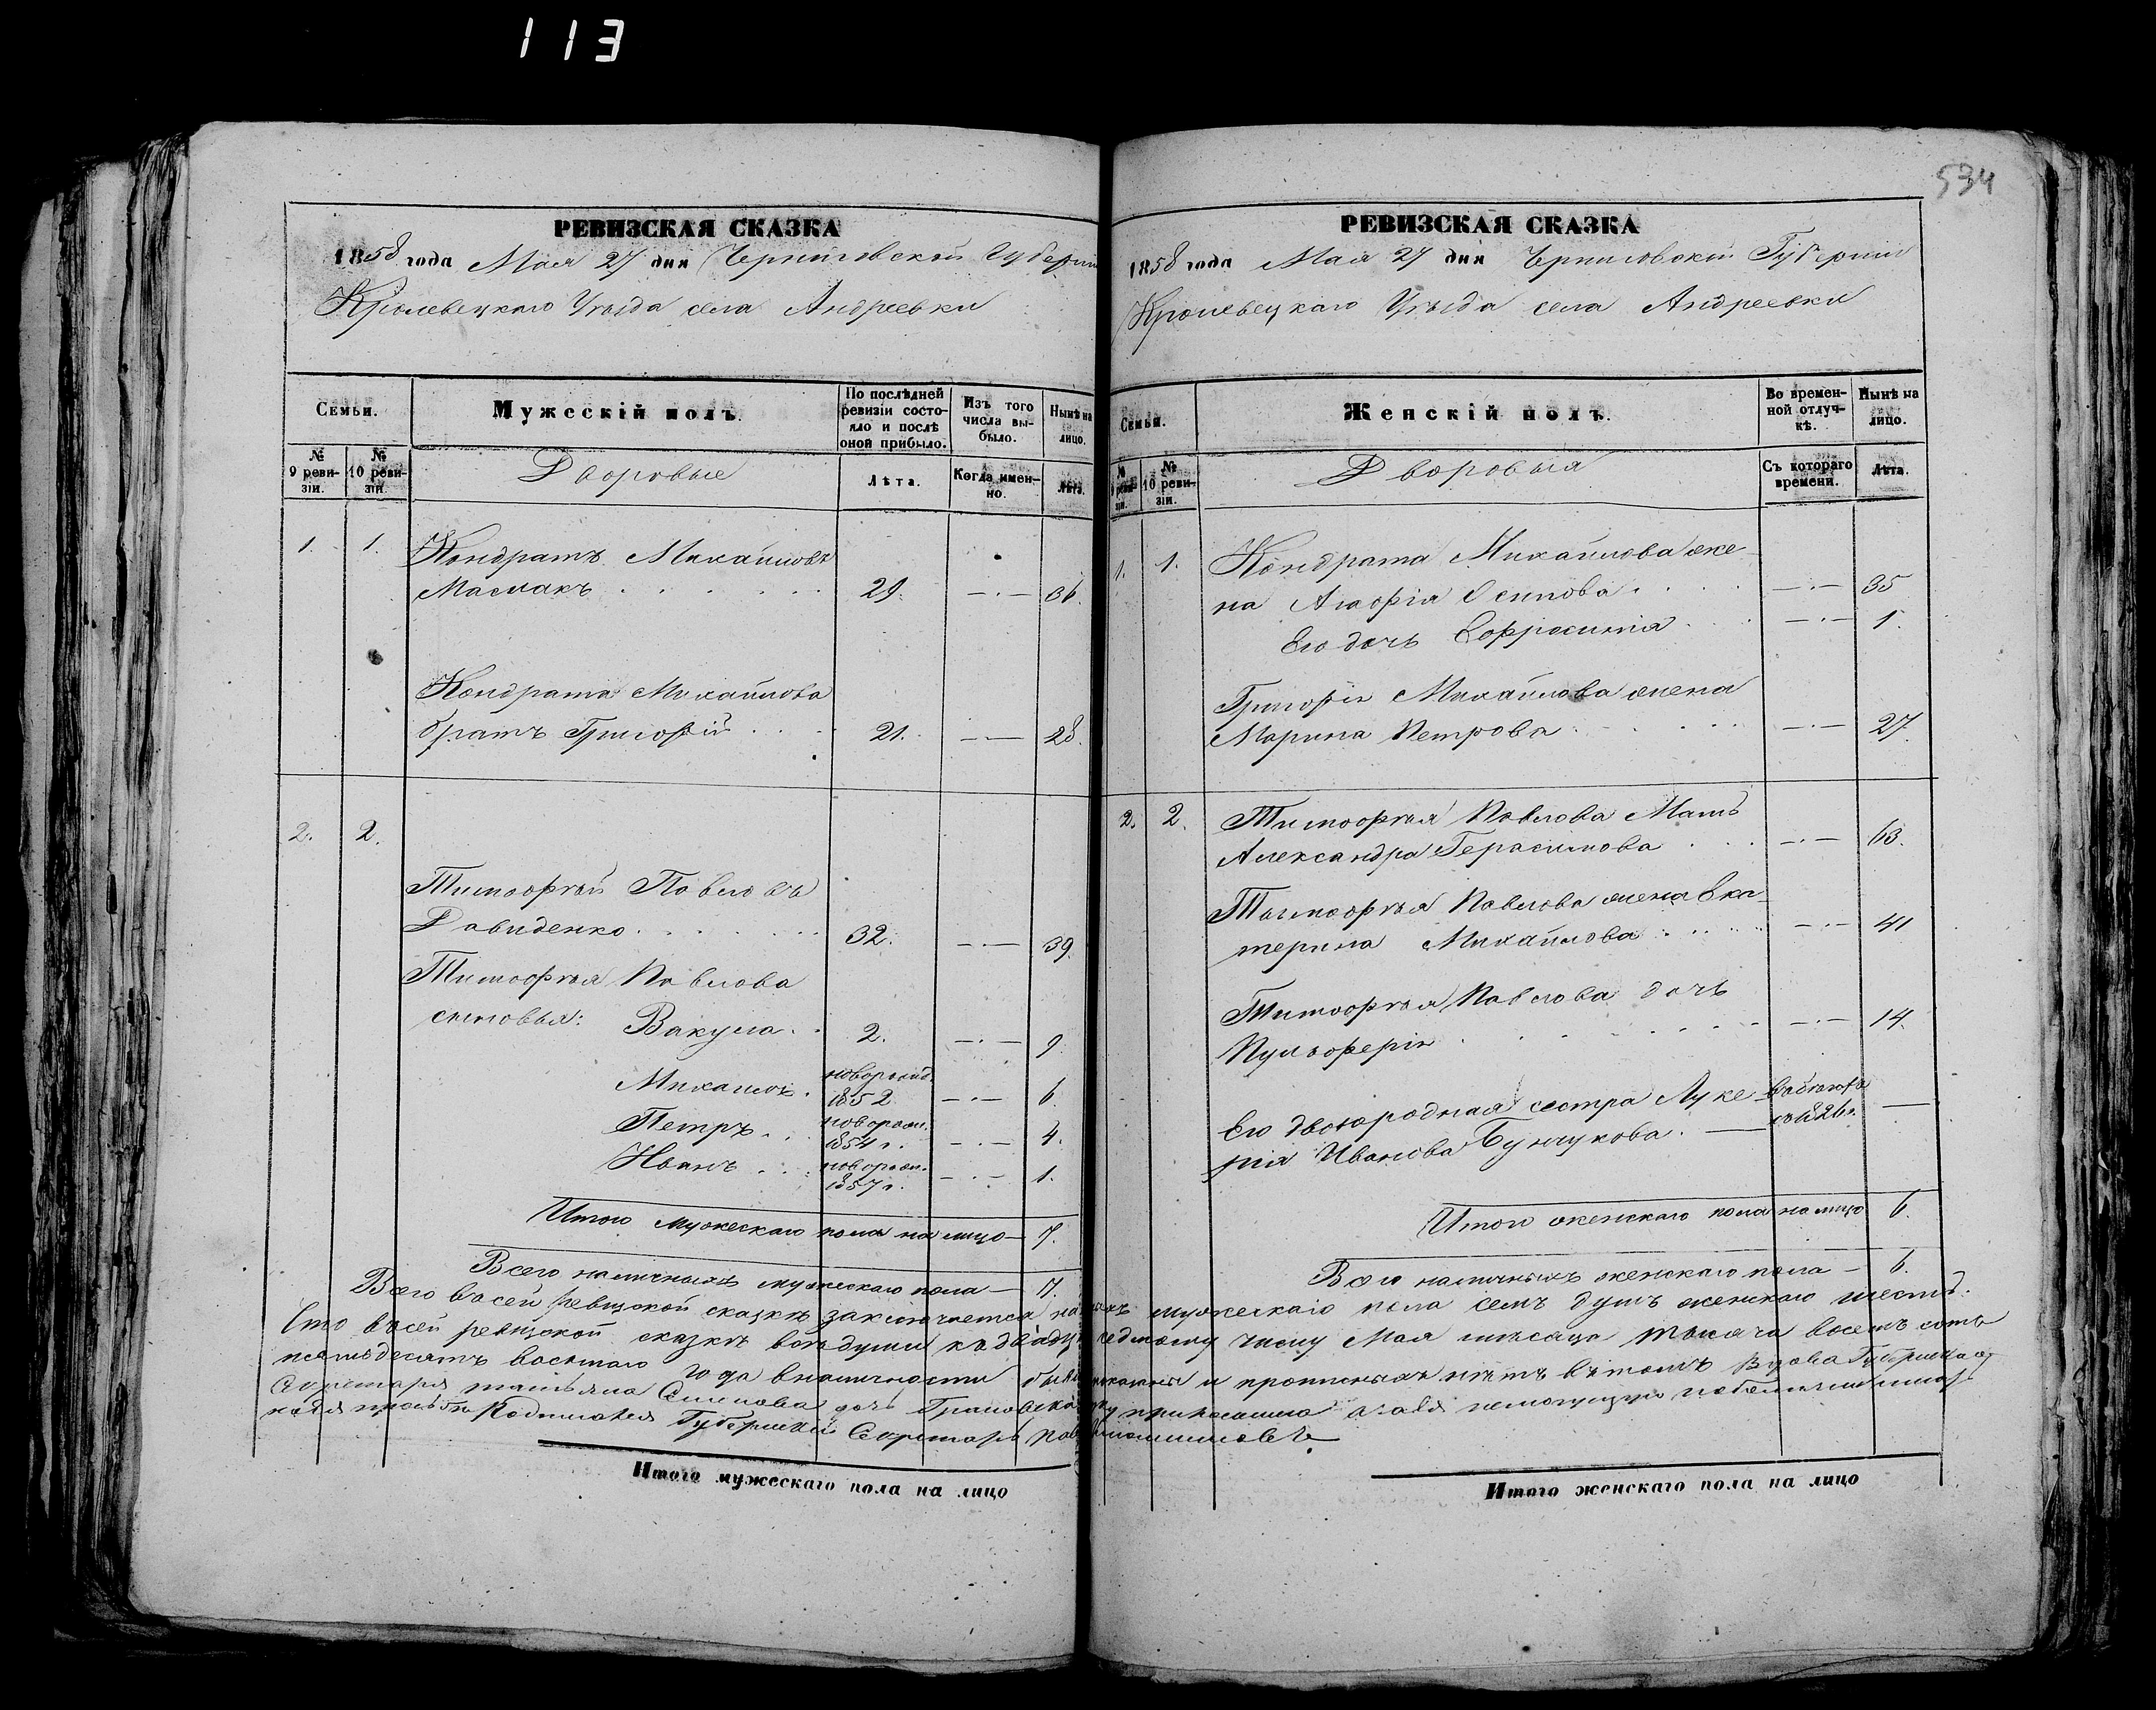 113
534
РЕВИЗСКАЯ СКАЗКА
1858 года Мая 27 дня Черниговской Губерніи
Кролевецкаго Уѣзда села Андреевки
Семьи.
Мужескій полъ.
По послѣдней ревизіи состояло и послѣ оной прибыло.
Изъ того числа выбыло.
Нынѣ на лицо.
№ 9 ревизіи.
№ 10 ревизіи.
Дворовые
Лѣта.
Когда именно.
Лѣта.
1. 1. Кондратъ Михайловъ
Масмакъ 29. —·— 36.
Кондрата Михайлова
братъ Григорій 21. —·— 28.
2. 2.
Тимофѣй Павловъ
Давиденко 32. —·— 39.
Тимофѣя Павлова
сыновья: Вакула 2. —·— 9.
Михаилъ новорожд. 1852 —·— 6.
Петръ новорож. 1854 г. —·— 4.
Иванъ новорож. 1857 г. —·— 1.
Итого мужескаго пола на лицо — 7.
Всего наличныхъ мужескаго пола — 7.
РЕВИЗСКАЯ СКАЗКА
1858 года Мая 27 дня Черниговской Губерніи
Кролевецкаго Уѣзда села Андреевки
Семьи.
Женскій полъ.
Во временной отлучкѣ.
Нынѣ на лицо.
№ 9 ревизіи.
№ 10 ревизіи.
Дворовыя
Съ котораго времени.
Лѣта.
1. 1. Кондрата Михайлова же-
на Агафія Осипова —·— 35
Его дочь Евфросинія —·— 1.
Григорія Михайлова жена
Марина Петрова —·— 27
2. 2. Тимофѣя Павлова Мать
Александра Герасимова —·— 63.
Тимофѣя Павлова жена Ека-
терина Михайлова —·— 41
Тимофѣя Павлова дочь
Пульхерія —·— 14.
Его двоюродная сестра Луке-
рія Иванова Бунчукова. — съ 1826 г. —
Итого женскаго пола на лицо 6.
Всего наличныхъ женскаго пола — 6.
Всего въ сей ревизской сказкѣ заключается мужескаго пола семь душъ женскаго шесть.
Что въ сей ревизской сказкѣ всѣ души къ двадцать седьмому числу Мая мѣсяца тысяча восемь сотъ
пятьдесятъ восьмаго года въ наличности и прописныхъ нѣтъ въ томъ Вдова Губернскаго
Секретаря Татьяна Семенова дочь
Губернскій Секретарь
Итого мужескаго пола на лицо
Итого женскаго пола на лицо